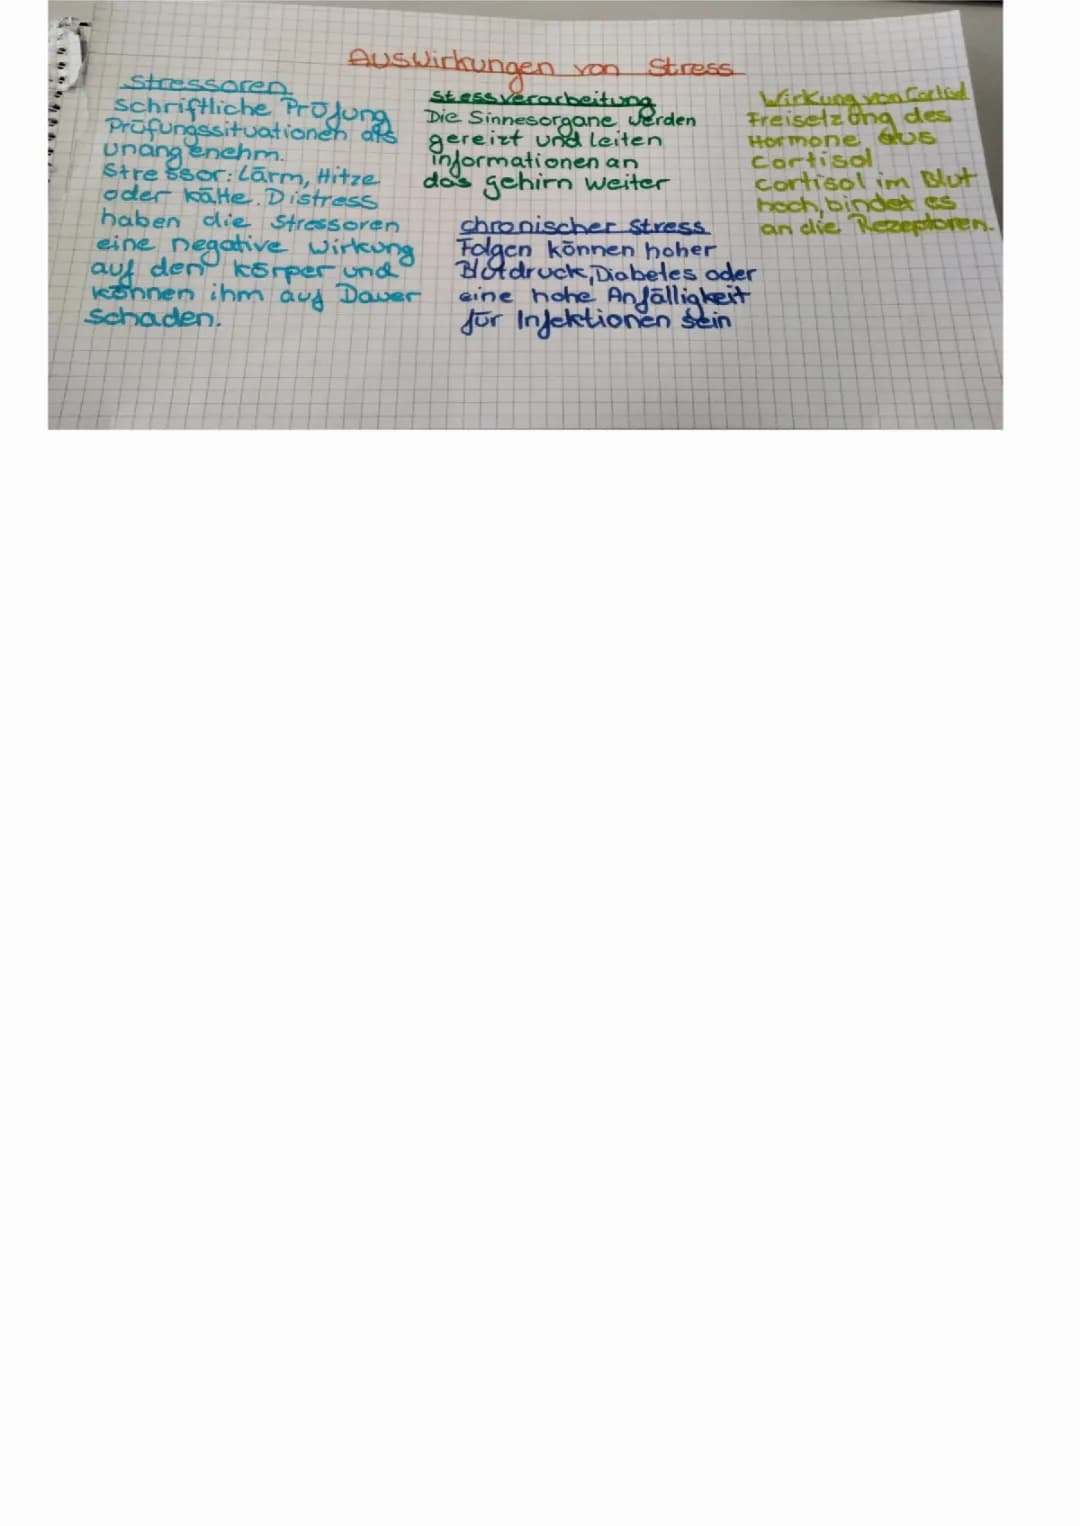 Auswirkungen von Stress
Stressoren
schriftliche Prüfung
Prüfungssituationen als
unangenehm.
Stressor: Lärm, Hitze
oder kälte. Distress
haben die Stressoren
eine negative wirkung
auf den körper und
können ihm auf Dauer
schaden.
Stessverarbeitung
Die Sinnesorgane werden
gereizt und leiten
informationen an
das gehirn weiter
chronischer Stress
Folgen können hoher
Blutdruck, Diabetes oder
eine hohe Anfälligkeit
für Infektionen sein
Wirkung von Cortisol
Freisetzung des
Hormone, aus
Cortisol
Cortisol im Blut
hoch, bindet es
an die Rezeptoren.